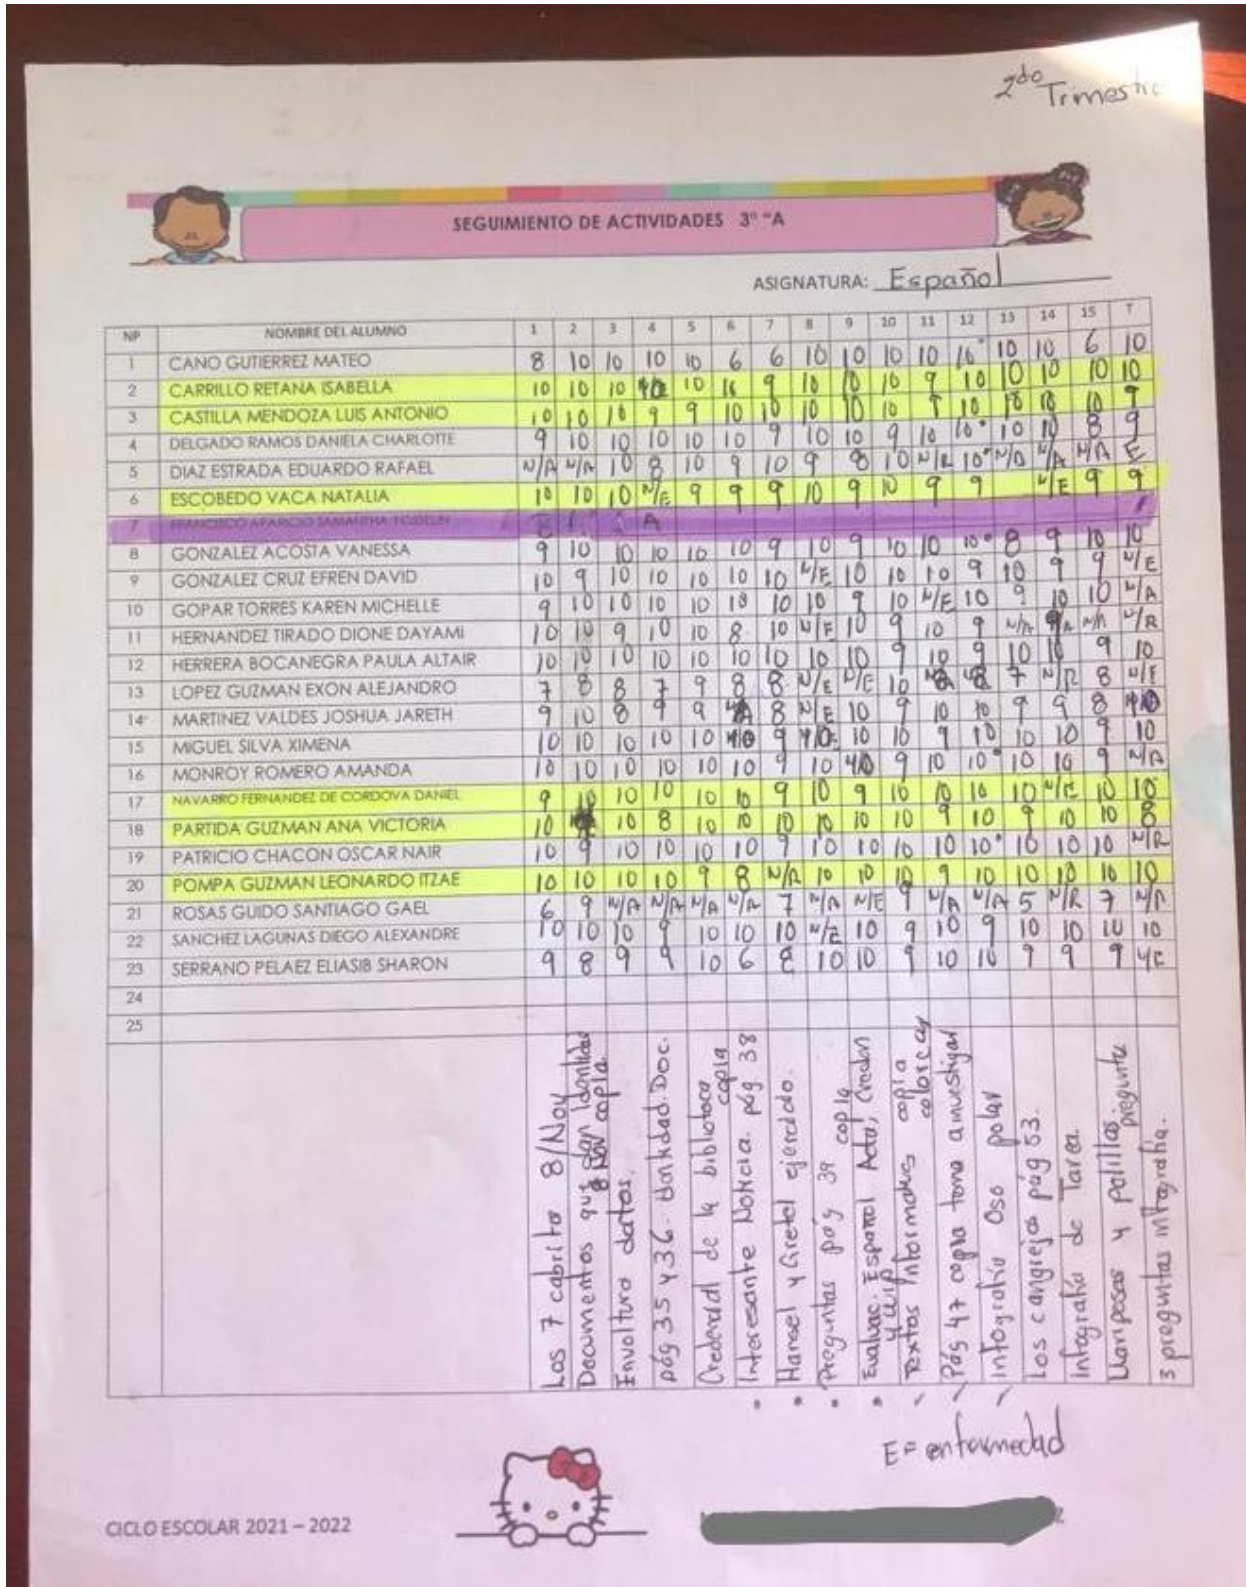 2do Trimestre
SEGUIMIENTO DE ACTIVIDADES 3° "A
ASIGNATURA: Español
NP NOMBRE DEL ALUMNO 1 2 3 4 5 6 7 8 9 10 11 12 13 14 15 T
1 CANO GUTIERREZ MATEO 8 10 10 10 10 6 6 10 10 10 10 10 10 10 6 10
2 CARRILLO RETANA ISABELLA 10 10 10 10 10 9 10 10 10 9 10 10 10 10 10
3 CASTILLA MENDOZA LUIS ANTONIO 10 10 10 9 9 10 10 10 10 10 9 10 10 10 10 9
4 DELGADO RAMOS DANIELA CHARLOTTE 9 10 10 10 10 10 9 10 10 9 10 10 10 10 8 9
5 DIAZ ESTRADA EDUARDO RAFAEL N/A N/A 10 8 10 9 10 9 8 10 N/R 10 N/A N/A N/A E
6 ESCOBEDO VACA NATALIA 10 10 10 N/E 9 9 9 10 9 10 9 9 N/E 9 9
7
8 GONZALEZ ACOSTA VANESSA 9 10 10 10 10 10 9 10 9 10 10 10 8 9 10 10
9 GONZALEZ CRUZ EFREN DAVID 10 9 10 10 10 10 10 N/E 10 10 10 9 10 9 9 N/E
10 GOPAR TORRES KAREN MICHELLE 9 10 10 10 10 10 10 10 9 10 N/E 10 9 10 10 N/A
11 HERNANDEZ TIRADO DIONE DAYAMI 10 10 9 10 10 8 10 N/E 10 9 10 9 N/A N/A N/R
12 HERRERA BOCANEGRA PAULA ALTAIR 10 10 10 10 10 10 10 10 10 9 10 9 10 10 9 10
13 LOPEZ GUZMAN EXON ALEJANDRO 7 8 8 7 9 8 8 N/E N/E 10 7 N/R 8 N/E
14 MARTINEZ VALDES JOSHUA JARETH 9 10 8 9 9 8 N/E 10 9 10 10 9 9 8
15 MIGUEL SILVA XIMENA 10 10 10 10 10 9 10 10 9 10 10 10 9 10
16 MONROY ROMERO AMANDA 10 10 10 10 10 10 9 10 9 10 10 10 10 9 N/A
17 NAVARRO FERNANDEZ DE CORDOVA DANIEL 9 10 10 10 10 10 9 10 9 10 10 10 10 N/E 10 10
18 PARTIDA GUZMAN ANA VICTORIA 10 10 8 10 10 10 10 10 10 9 10 9 10 10 8
19 PATRICIO CHACON OSCAR NAIR 10 9 10 10 10 10 9 10 10 10 10 10 10 10 10 N/R
20 POMPA GUZMAN LEONARDO ITZAE 10 10 10 10 9 8 N/R 10 10 10 9 10 10 10 10 10
21 ROSAS GUIDO SANTIAGO GAEL 6 9 N/A N/A N/A N/A 7 N/A N/E 9 N/A N/A 5 N/R 7 N/A
22 SANCHEZ LAGUNAS DIEGO ALEXANDRE 10 10 10 9 10 10 10 N/E 10 9 10 9 10 10 10 10
23 SERRANO PELAEZ ELIASIB SHARON 9 8 9 9 10 6 8 10 10 9 10 10 9 9 9
24
25
Los 7 cabrito 8/Nov
Documentos que dan Identidad
8 Nov copia.
Involturo datos.
pág 35 y 36. Identidad Doc.
Credencial de la biblioteca
copia
Interesante Noticia. pág 38
Hansel y Gretel ejercicio.
Preguntas pág 39 copia
Evaluac. Español Acta, Creden
y clip
Textos Informativos copia
colorear
Pág 47 copia toma a investigar
Infografía Oso polar
Los cangrejos pág 53.
infografía de Tarea.
Mariposas y polillas. pregunta
3 preguntas infografía.
E = enfermedad
CICLO ESCOLAR 2021 – 2022